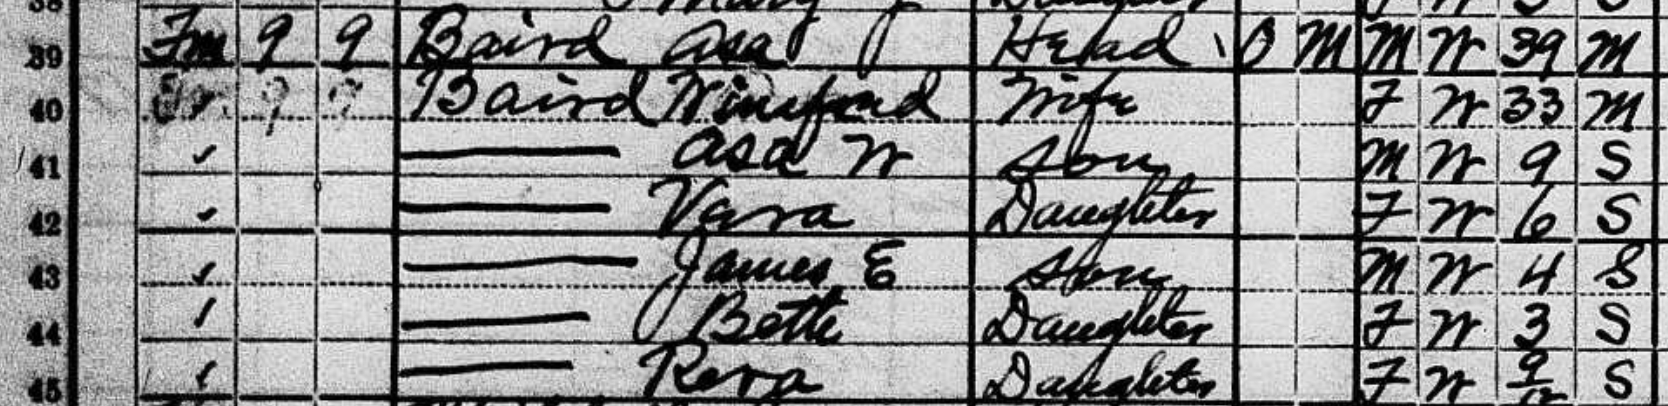 38 Mary J Daughter F W 5 S
39 Fm 9 9 Baird Asa Head O M M W 39 M
40 Fm 9 9 Baird Winifred Wife F W 33 M
41 Asa W Son M W 9 S
42 Vara Daughter F W 6 S
43 James E Son M W 4 S
44 Bette Daughter F W 3 S
45 Reva Daughter F W 9/12 S